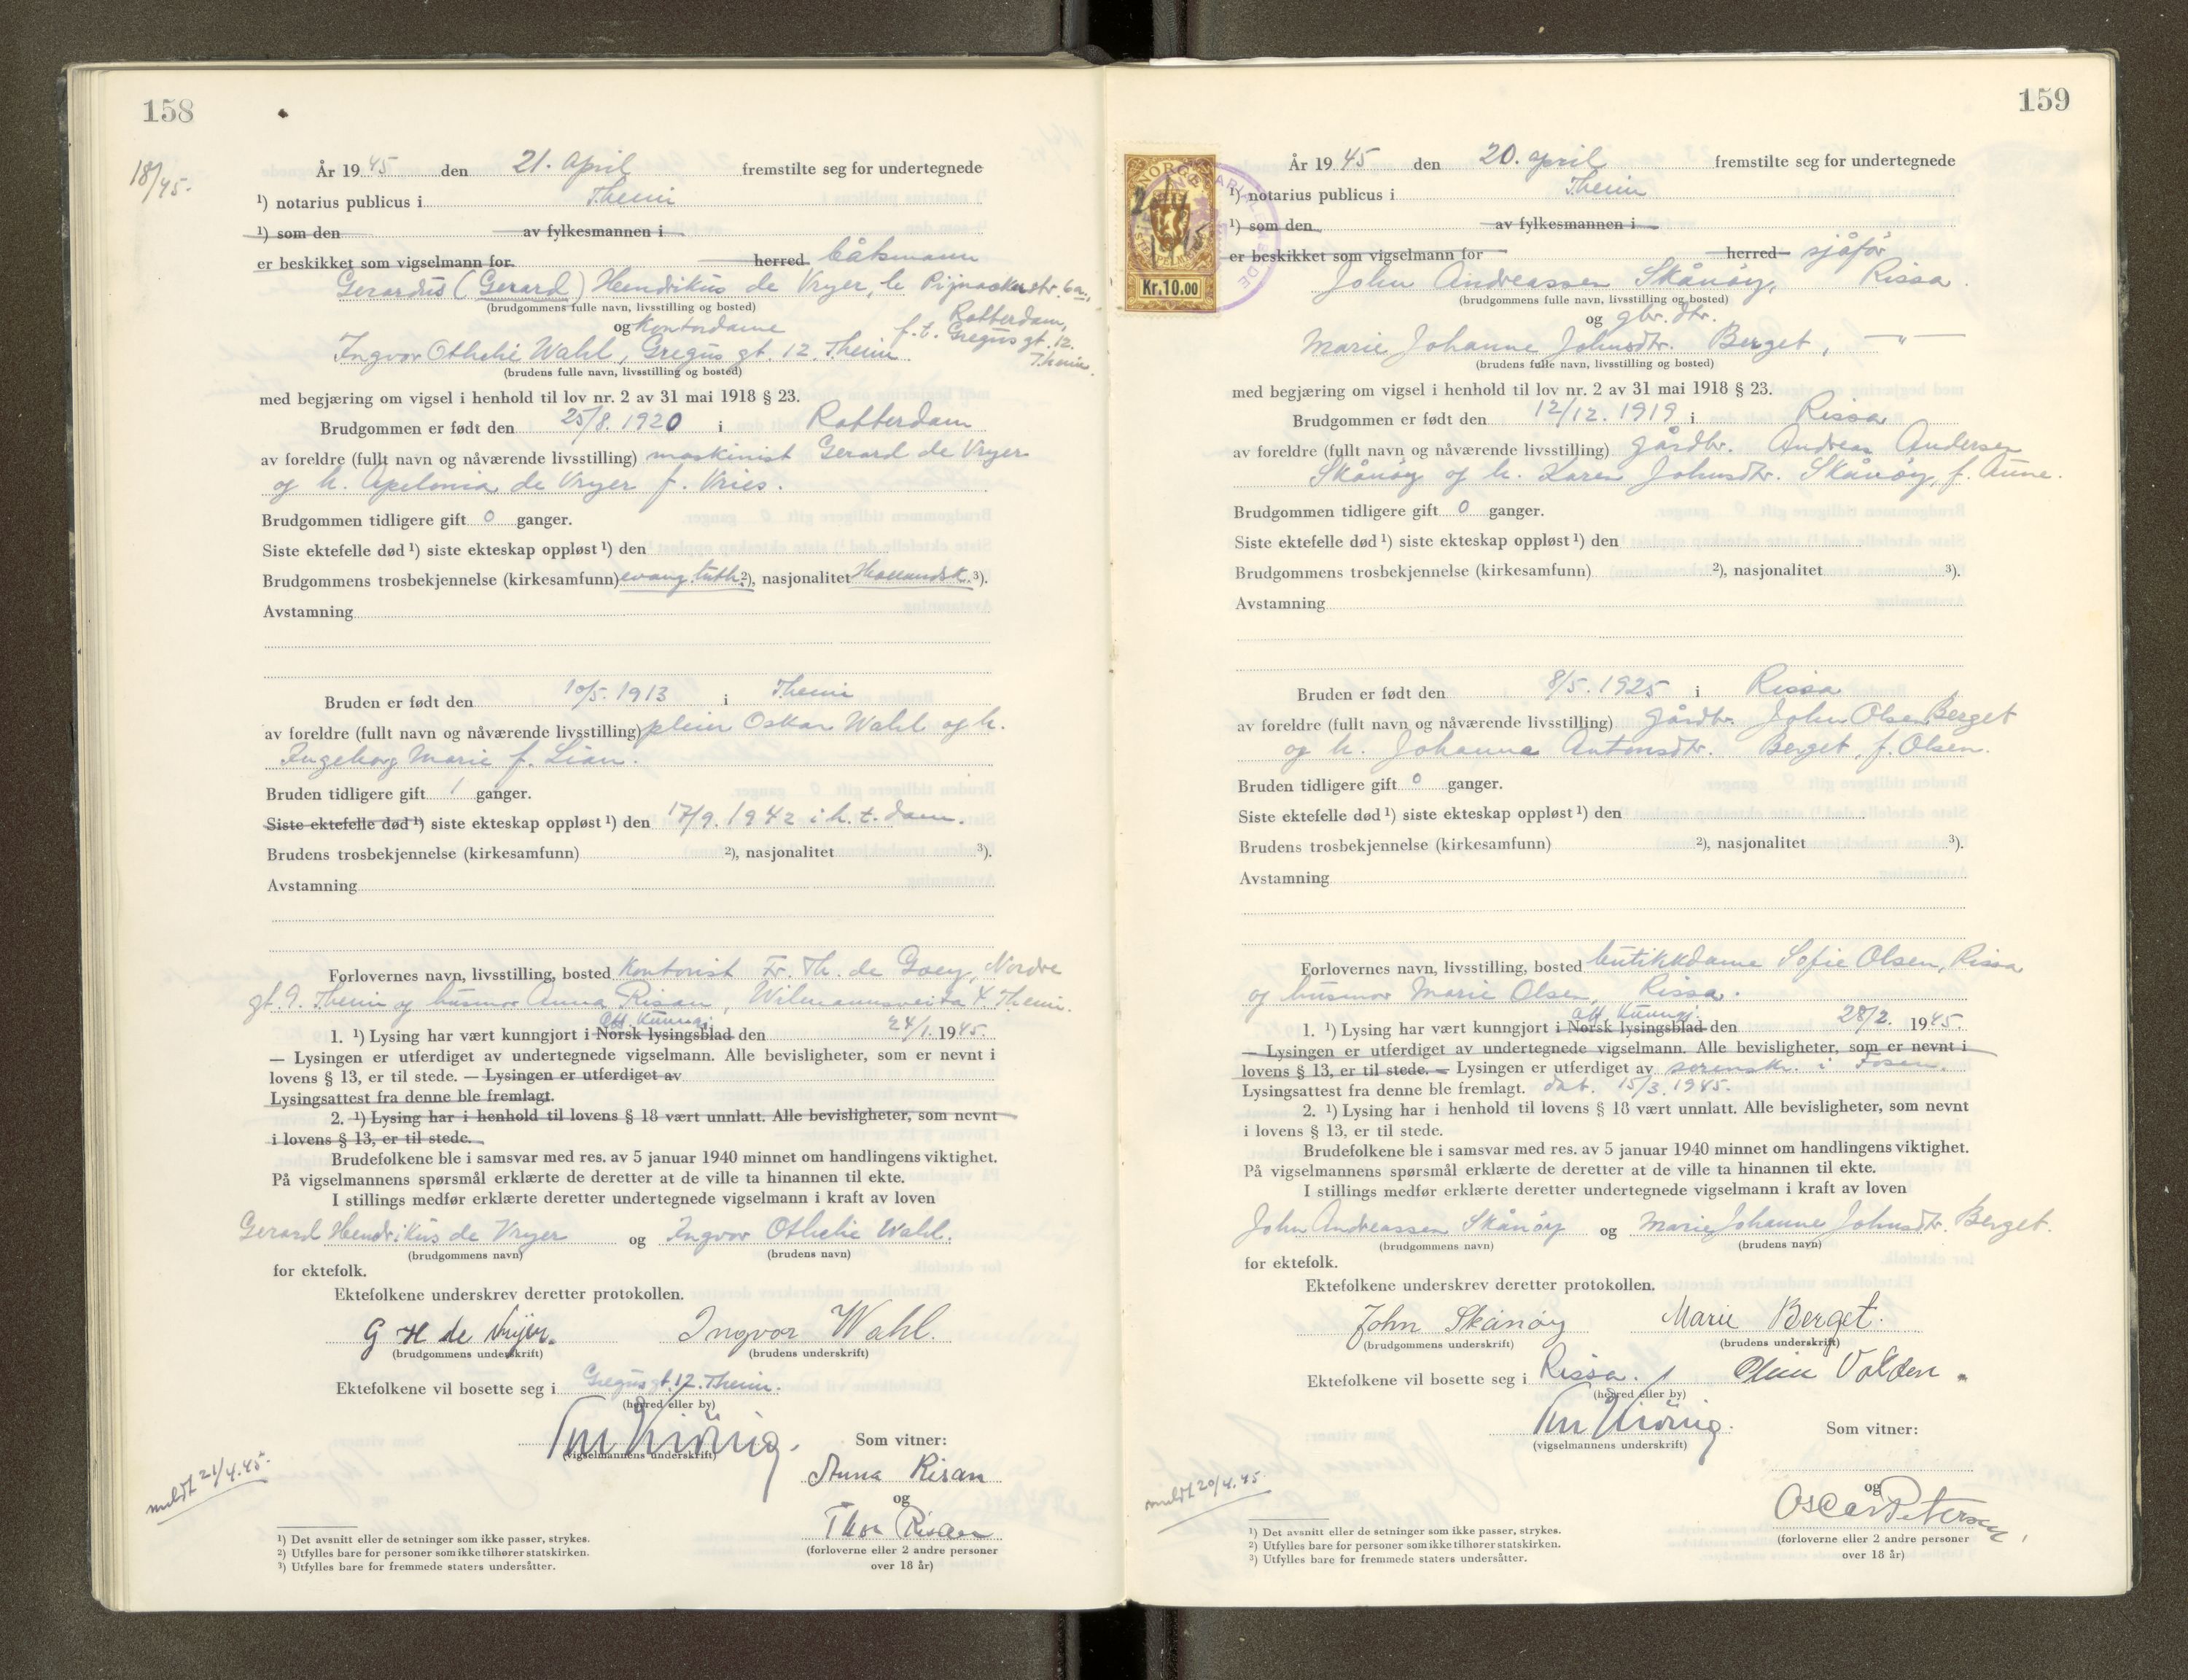 158
18/45.
År 1945 den 21. april fremstilte seg for undertegnede
¹) notarius publicus i Thein
¹) som den av fylkesmannen i
er beskikket som vigselmann for herred båtsmann
Gerardus (Gerard) Hendrikus de Vryer, Pijnackerstr. 6a,
(brudgommens fulle navn, livsstilling og bosted)
Rotterdam,
og Kontordame f. t. Gregus gt. 12.
Ingvor Othelie Wahl, Gregus gt. 12. Theim. Theim.
(brudens fulle navn, livsstilling og bosted)
med begjæring om vigsel i henhold til lov nr. 2 av 31 mai 1918 § 23.
Brudgommen er født den 25/8. 1920 i Rotterdam
av foreldre (fullt navn og nåværende livsstilling) maskinist Gerard de Vryer
og h. Apelonia de Vryer f. Vries.
Brudgommen tidligere gift 0 ganger.
Siste ektefelle død ¹) siste ekteskap oppløst ¹) den
Brudgommens trosbekjennelse (kirkesamfunn) evang. luth. ²), nasjonalitet Hollandsk. ³).
Avstamning
Bruden er født den 10/5. 1913 i Theim
av foreldre (fullt navn og nåværende livsstilling) pleier Oskar Wahl og h.
Ingeborg Marie f. Lian.
Bruden tidligere gift 1 ganger.
Siste ektefelle død ¹) siste ekteskap oppløst ¹) den 17/9. 1942 i h. t. dom.
Brudens trosbekjennelse (kirkesamfunn) ²), nasjonalitet ³).
Avstamning
Forlovernes navn, livsstilling, bosted Kontorist Fr. Th. de Goey, Nordre
gt. 9. Theim og husmor Anna Risan, Wilmannsveita 4. Theim.
Off. Kunngj.
1. ¹) Lysing har vært kunngjort i Norsk lysingsblad den 24/1. 1945.
— Lysingen er utferdiget av undertegnede vigselmann. Alle bevisligheter, som er nevnt i
lovens § 13, er til stede. — Lysingen er utferdiget av
Lysingsattest fra denne ble fremlagt.
2. ¹) Lysing har i henhold til lovens § 18 vært unnlatt. Alle bevisligheter, som nevnt
i lovens § 13, er til stede.
Brudefolkene ble i samsvar med res. av 5 januar 1940 minnet om handlingens viktighet.
På vigselmannens spørsmål erklærte de deretter at de ville ta hinannen til ekte.
I stillings medfør erklærte deretter undertegnede vigselmann i kraft av loven
Gerard Hendrikus de Vryer og Ingvor Othelie Wahl.
(brudgommens navn) (brudens navn)
for ektefolk.
Ektefolkene underskrev deretter protokollen.
G H de Vrijer. Ingvor Wahl.
(brudgommens underskrift) (brudens underskrift)
Ektefolkene vil bosette seg i Gregus gt. 12. Theim.
(herred eller by)
(vigselmannens underskrift)
Som vitner:
Anna Risan
og
Thor Risan
meldt 21/4.45.
(forloverne eller 2 andre personer
over 18 år)
¹) Det avsnitt eller de setninger som ikke passer, strykes.
²) Utfylles bare for personer som ikke tilhører statskirken.
³) Utfylles bare for fremmede staters undersåtter.
159
NORGE
Kr. 10.00
År 1945 den 20. april fremstilte seg for undertegnede
¹) notarius publicus i Theim
¹) som den av fylkesmannen i
er beskikket som vigselmann for herred sjåfør
John Andreassen Skånøy, Rissa.
(brudgommens fulle navn, livsstilling og bosted)
og gbr. dtr.
Marie Johanne Johnsdtr. Berget, — " —
(brudens fulle navn, livsstilling og bosted)
med begjæring om vigsel i henhold til lov nr. 2 av 31 mai 1918 § 23.
Brudgommen er født den 12/12. 1919 i Rissa
av foreldre (fullt navn og nåværende livsstilling) gårdbr. Andreas Andersen
Skånøy og h. Karen Johnsdtr. Skånøy, f. Aune.
Brudgommen tidligere gift 0 ganger.
Siste ektefelle død ¹) siste ekteskap oppløst ¹) den
Brudgommens trosbekjennelse (kirkesamfunn) ²), nasjonalitet ³).
Avstamning
Bruden er født den 8/5. 1925 i Rissa
av foreldre (fullt navn og nåværende livsstilling) gårdbr. John Olsen Berget
og h. Johanna Antonsdtr. Berget, f. Olsen.
Bruden tidligere gift 0 ganger.
Siste ektefelle død ¹) siste ekteskap oppløst ¹) den
Brudens trosbekjennelse (kirkesamfunn) ²), nasjonalitet ³).
Avstamning
Forlovernes navn, livsstilling, bosted butikkdame Sofie Olsen, Rissa
og husmor Marie Olsen, Rissa.
Off. Kunngj.
1. ¹) Lysing har vært kunngjort i Norsk lysingsblad den 28/2. 1945.
— Lysingen er utferdiget av undertegnede vigselmann. Alle bevisligheter, som er nevnt i
lovens § 13, er til stede. — Lysingen er utferdiget av sorenskr. i Fosen.
Lysingsattest fra denne ble fremlagt. dat. 15/3. 1945.
2. ¹) Lysing har i henhold til lovens § 18 vært unnlatt. Alle bevisligheter, som nevnt
i lovens § 13, er til stede.
Brudefolkene ble i samsvar med res. av 5 januar 1940 minnet om handlingens viktighet.
På vigselmannens spørsmål erklærte de deretter at de ville ta hinannen til ekte.
I stillings medfør erklærte deretter undertegnede vigselmann i kraft av loven
John Andreassen Skånøy og Marie Johanne Johnsdtr. Berget.
(brudgommens navn) (brudens navn)
for ektefolk.
Ektefolkene underskrev deretter protokollen.
John Skånøy Marie Berget.
(brudgommens underskrift) (brudens underskrift)
Ektefolkene vil bosette seg i Rissa. Volden
(herred eller by)
(vigselmannens underskrift)
Som vitner:
og
Oscar Petersen
meldt 20/4.45
(forloverne eller 2 andre personer
over 18 år)
¹) Det avsnitt eller de setninger som ikke passer, strykes.
²) Utfylles bare for personer som ikke tilhører statskirken.
³) Utfylles bare for fremmede staters undersåtter.